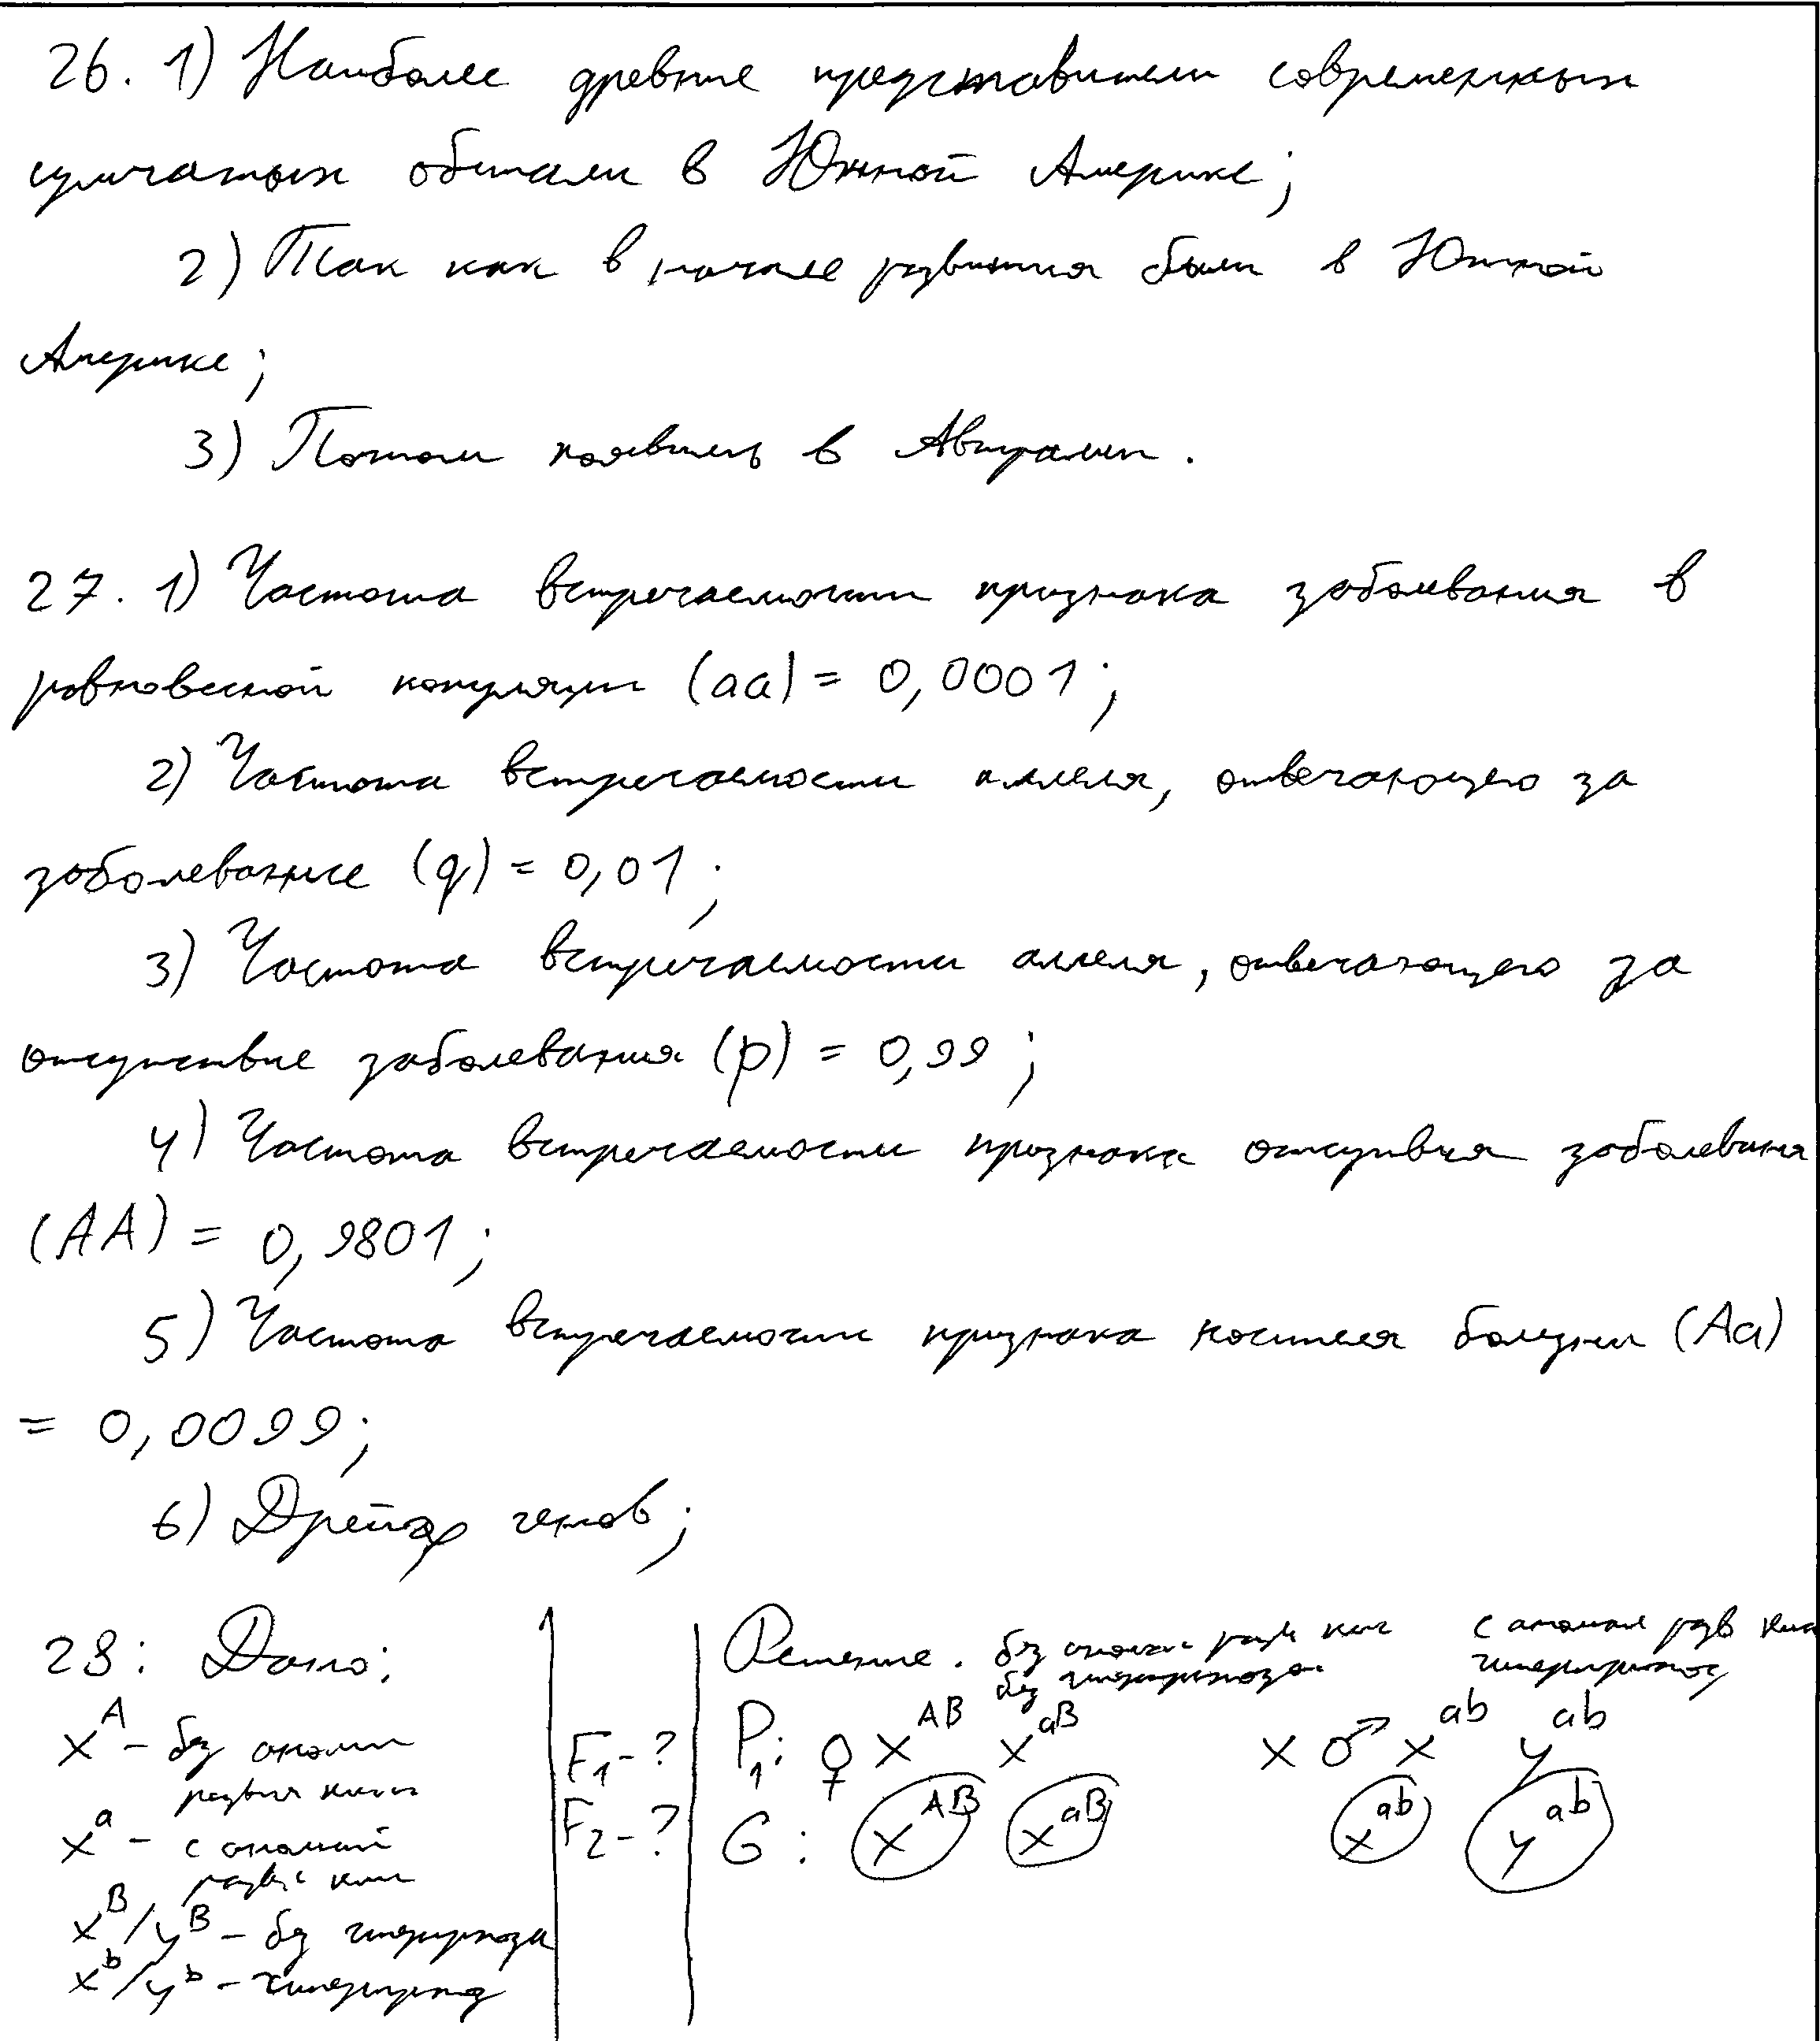 26. 1) Наиболее древние представители современных
сумчатых обитали в Южной Америке;
2) Так как в начале развития были в Южной
Америке;
3) Потом появились в Австралии.
27. 1) Частота встречаемости признака заболевания в
равновесной популяции (aa) = 0,0001;
2) Частота встречаемости аллеля, отвечающего за
заболевание (q) = 0,01;
3) Частота встречаемости аллеля, отвечающего за
отсутствие заболевания (p) = 0,99;
4) Частота встречаемости признака отсутвия заболевания
(AA) = 0,9801;
5) Частота встречаемости признака носителя болезни (Aa)
= 0,0099;
6) Дрейф генов;
28: Дано:
X^A - без аномал
разв кист
X^a - с аномалий
разв кист
X^B/Y^B - без гипертриоза
X^b/Y^b - гипертри
F₁-?
F₂-?
Решение. без аномал разв кис с аномал разв кис
без
P₁: ♀ X^AB X^aB x ♂ X^ab Y^ab
G: X^AB X^aB X^ab Y^ab